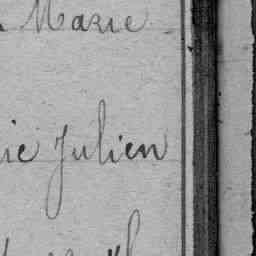 Marie
ie Julien